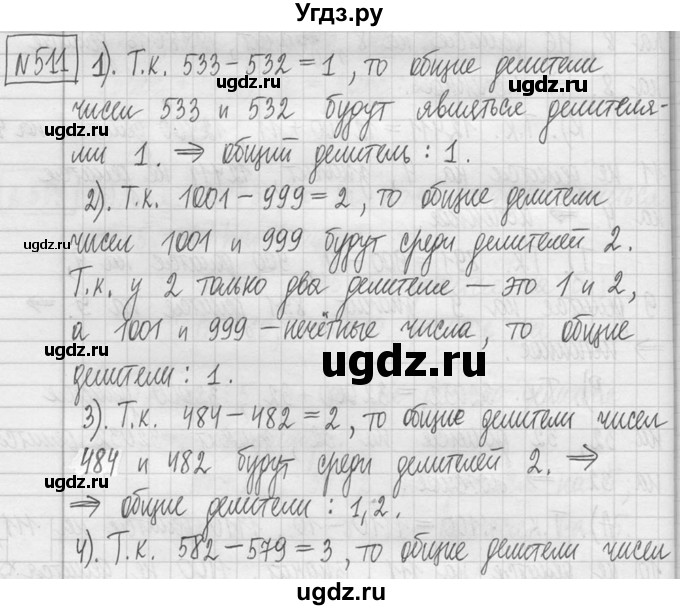 Угдз.ру
№511 1). Т.к. 533-532=1, то общие делители
ugdz.ru ugdz.ru
чисел 533 и 532 будут являться делителя-
ми 1. ⇒ общий делитель: 1.
ugdz.ru
2). Т.к. 1001-999=2, то общие делители
ugdz.ru
чисел 1001 и 999 будут среди делителей 2.
ugdz.ru
Т.к. у 2 только два делителе — это 1 и 2,
а 1001 и 999 - нечётные числа, то общие
ugdz.ru ugdz.ru
делители: 1.
3). Т.к. 484-482=2, то общие делители чисел
ugdz.ru
484 и 482 будут среди делителей 2. ⇒
ugdz.ru
⇒ общие делители: 1,2.
ugdz.ru
4). Т.к. 582-579=3, то общие делители чисел
ugdz.ru